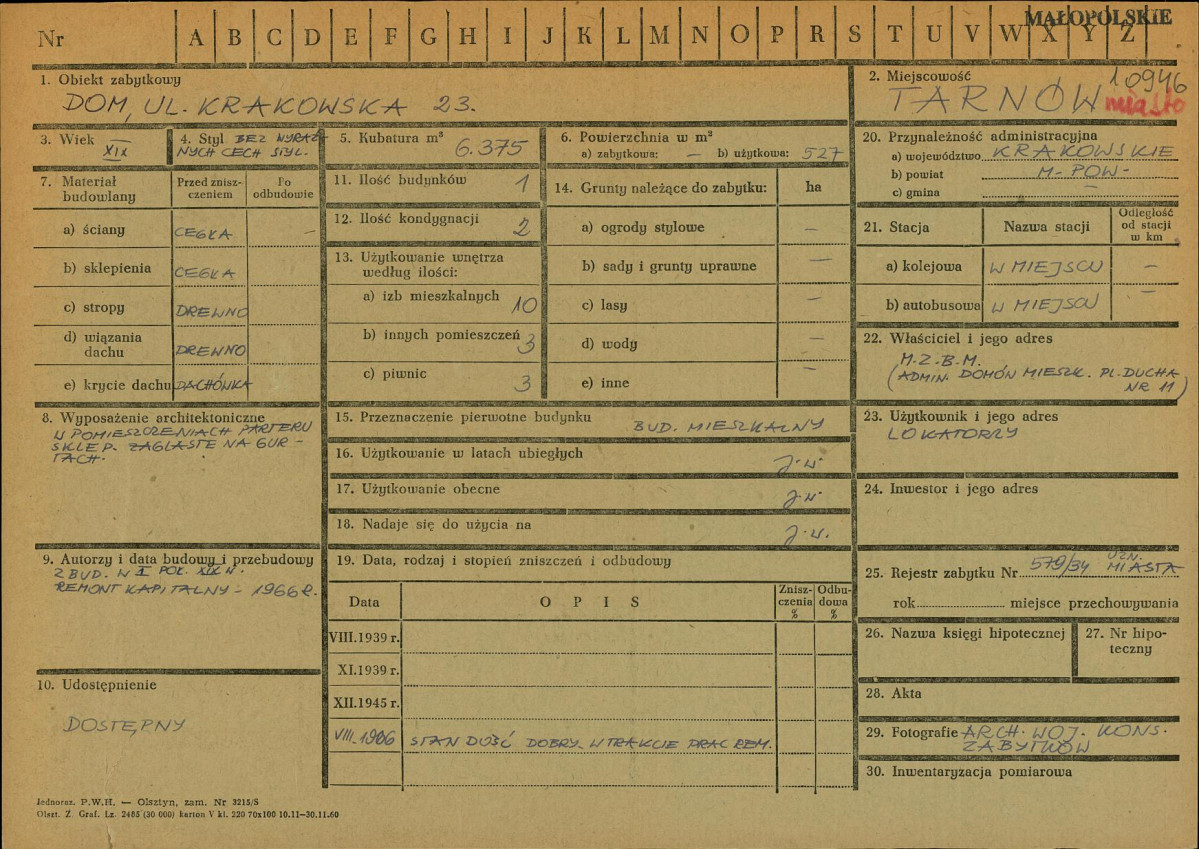 MAŁOPOLSKIE
Nr A B C D E F G H I J K L M N O P R S T U V W X Y Z
1. Obiekt zabytkowy
DOM, UL. KRAKOWSKA 23.
2. Miejscowość 10946
TARNÓW miasto
3. Wiek
XIX
4. Styl BEZ WYRAŹ
NYCH CECH STYL.
5. Kubatura m³
6.375
6. Powierzchnia w m²
a) zabytkowa: — b) użytkowa: 527
7. Materiał
budowlany
Przed znisz-
czeniem
Po
odbudowie
a) ściany CEGŁA —
b) sklepienia CEGŁA
c) stropy DREWNO
d) wiązania
dachu DREWNO
e) krycie dachu DACHÓWKA
8. Wyposażenie architektoniczne
W POMIESZCZENIACH PARTERU
SKLEP. ZAGLASTE NA GUR-
TACH.
9. Autorzy i data budowy i przebudowy
ZBUD. W I POŁ. XIX W.
REMONT KAPITALNY – 1966 R.
10. Udostępnienie
DOSTĘPNY
11. Ilość budynków 1
12. Ilość kondygnacji 2
13. Użytkowanie wnętrza
według ilości:
a) izb mieszkalnych 10
b) innych pomieszczeń 3
c) piwnic 3
14. Grunty należące do zabytku: ha
a) ogrody stylowe —
b) sady i grunty uprawne —
c) lasy —
d) wody —
e) inne —
15. Przeznaczenie pierwotne budynku
BUD. MIESZKALNY
16. Użytkowanie w latach ubiegłych
J.W.
17. Użytkowanie obecne J.W.
18. Nadaje się do użycia na J.W.
19. Data, rodzaj i stopień zniszczeń i odbudowy
Data OPIS Znisz-
czenia
%
Odbu-
dowa
%
VIII.1939 r.
XI.1939 r.
XII.1945 r.
VIII.1966 STAN DOŚĆ DOBRY. W TRAKCIE PRAC REM.
20. Przynależność administracyjna
a) województwo KRAKOWSKIE
b) powiat M-POW-
c) gmina —
21. Stacja Nazwa stacji Odległość
od stacji
w km
a) kolejowa W MIEJSCU —
b) autobusowa W MIEJSCU —
22. Właściciel i jego adres
M.Z.B.M.
(ADMIN. DOMÓW MIESZK. PL. DUCHA
NR 11)
23. Użytkownik i jego adres
LOKATORZY
24. Inwestor i jego adres
25. Rejestr zabytku Nr 579/34 UZN. MIASTA
rok miejsce przechowywania
26. Nazwa księgi hipotecznej
27. Nr hipo-
teczny
28. Akta
29. Fotografie ARCH. WOJ. KONS.
ZABYTKÓW
30. Inwentaryzacja pomiarowa
Jednoraz. P.W.H. — Olsztyn, zam. Nr 3215/S
Olszt. Z. Graf. Lz. 2485 (30 000) karton V kl. 220 70x100 10.11—30.11.60